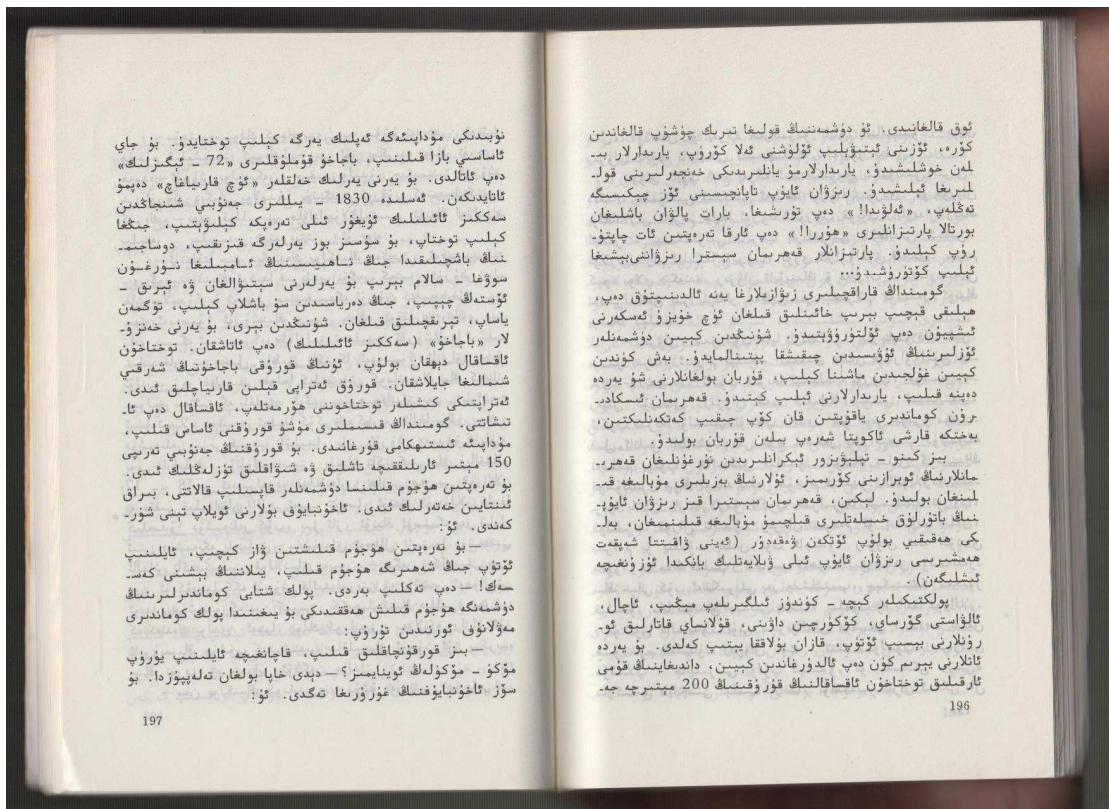 ئوق قالغانىدى. ئۇ دۈشمەننىڭ قولىغا تىرىك چۈشۈپ قالغاندىن
كۆرە، ئۆزىنى ئېتىۋېلىپ ئۆلۈشنى ئەلا كۆرۈپ، يارىدارلار بىـ
لەن خوشلىشىدۇ، يارىدارلارمۇ يانلىرىدىكى خەنجەرلىرىنى قولـ
لىرىغا ئېلىشىدۇ. رىزۋان ئايۇپ تاپانچىسىنى ئۆز چېكىسىگە
تەڭلەپ، «ئەلۋىدا!» دەپ تۇرىشىغا، بارات پالۋان باشلىغان
بورتالا پارتىزانلىرى «ھۇررا!» دەپ ئارقا تەرەپتىن ئات چاپتۇـ
رۇپ كېلىدۇ. پارتىزانلار قەھرىمان سېسترا رىزۋاننى بېشىغا
ئېلىپ كۆتۈرۈشىدۇ...
گومىنداڭ قاراقچىلىرى زىۋازىلارغا يەنە ئالدىنىپتۇق دەپ،
ھېلىقى قېچىپ بېرىپ خائىنلىق قىلغان ئۈچ خۇيزۇ ئەسكەرنى
ئىشپىيۇن دەپ ئۆلتۈرۈۋېتىدۇ. شۇنىڭدىن كېيىن دۈشمەنلەر
ئۆزلىرىنىڭ ئۇۋىسىدىن چىقىشقا پېتىنالمايدۇ. بەش كۈندىن
كېيىن غۇلجىدىن ماشىنا كېلىپ، قۇربان بولغانلارنى شۇ يەردە
دەپنە قىلىپ، يارىدارلارنى ئېلىپ كېتىدۇ. قەھرىمان ئىسكادـ
رون كوماندىرى ياقۇپتىن قان كۆپ چىقىپ كەتكەنلىكتىن،
بەختكە قارشى ئاكوپتا شەرەپ بىلەن قۇربان بولىدۇ.
بىز كىنو ـ تېلېۋىزور ئېكرانلىرىدىن نۇرغۇنلىغان قەھرىـ
مانلارنىڭ ئوبرازىنى كۆرىمىز، ئۇلارنىڭ بەزىلىرى مۇبالىغە قىـ
لىنغان بولىدۇ. لېكىن، قەھرىمان سېسترا قىز رىزۋان ئايۇپـ
نىڭ باتۇرلۇق خىسلەتلىرى قىلچىمۇ مۇبالىغە قىلىنمىغان، بەلـ
كى ھەقىقىي بولۇپ ئۆتكەن ۋەقەدۇر (ئەينى ۋاقىتتا شەپقەت
ھەمشىرىسى رىزۋان ئايۇپ ئىلى ۋىلايەتلىك بانكىدا ئۇزۇنغىچە
ئىشلىگەن).
پولكتىكىلەر كېچە ـ كۈندۈز ئىلگىرىلەپ مېڭىپ، ئاچال،
ئالۋاستى گۆرساي، كۆكۈرچىن داۋىنى، قۇلانساي قاتارلىق ئوـ
رۇنلارنى بېسىپ ئۆتۈپ، قازان بۇلاققا يېتىپ كەلدى. بۇ يەردە
ئاتلارنى يېرىم كۈن دەپ ئالدۇرغاندىن كېيىن، داندىغاينىڭ قۇمى
ئارقىلىق توختاخۇن ئاقساقالنىڭ قورۇقىنىڭ 200 مېتىرچە جەـ
196
نۇبىدىكى مۇداپىئەگە ئەپلىك يەرگە كېلىپ توختايدۇ. بۇ جاي
ئاساسىي بازا قىلىنىپ، باجاخۇ قۇملۇقلىرى «72 ـ ئېگىزلىك»
دەپ ئاتالدى. بۇ يەرنى يەرلىك خەلقلەر «ئۈچ قارىياغاچ» دەپمۇ
ئاتايدىكەن. ئەسلىدە 1830 ـ يىللىرى جەنۇبىي شىنجاڭدىن
سەككىز ئائىلىلىك ئۇيغۇر ئىلى تەرەپكە كېلىۋېتىپ، جىڭغا
كېلىپ توختاپ، بۇ سۇسىز بوز يەرلەرگە قىزىقىپ، دوساجىمـ
نىڭ باشچىلىقىدا جىڭ ناھىيىسىنىڭ ئامبىلىغا نۇرغۇن
سوۋغا ـ سالام بېرىپ بۇ يەرلەرنى سېتىۋالغان ۋە ئېرىق ـ
ئۆستەڭ چېپىپ، جىڭ دەرياسىدىن سۇ باشلاپ كېلىپ، تۈگمەن
ياساپ، تېرىقچىلىق قىلغان. شۇنىڭدىن بېرى، بۇ يەرنى خەنزۇـ
لار «باجاخۇ» (سەككىز ئائىلىلىك) دەپ ئاتاشقان. توختاخۇن
ئاقساقال دېھقان بولۇپ، ئۇنىڭ قورۇقى باجاخۇنىڭ شەرقىي
شىمالىغا جايلاشقان. قورۇق ئەتراپى قېلىن قارىياچلىق ئىدى.
ئەتراپتىكى كىشىلەر توختاخۇننى ھۆرمەتلەپ، ئاقساقال دەپ ئاـ
تىشاتتى. گومىنداڭ قىسىملىرى مۇشۇ قورۇقنى ئاساس قىلىپ،
مۇداپىئە ئىستىھكامى قۇرغانىدى. بۇ قورۇقنىڭ جەنۇبىي تەرىپى
150 مېتىر ئارىلىققىچە تاشلىق ۋە شىۋاقلىق تۈزلەڭلىك ئىدى.
بۇ تەرەپتىن ھۇجۇم قىلىنسا دۈشمەنلەر قاپسىلىپ قالاتتى، بىراق
ئىنتايىن خەتەرلىك ئىدى. ئاخۇنبايۇف بۇلارنى ئويلاپ تېنى شۈرـ
كەندى. ئۇ:
— بۇ تەرەپتىن ھۇجۇم قىلىشتىن ۋاز كېچىپ، ئايلىنىپ
ئۆتۈپ جىڭ شەھىرىگە ھۇجۇم قىلىپ، يىلاننىڭ بېشىنى كەسـ
سەك! — دەپ تەكلىپ بەردى. پولك شتابى كوماندىرلىرىنىڭ
دۈشمەنگە ھۇجۇم قىلىش ھەققىدىكى بۇ يىغىنىدا پولك كوماندىرى
مەۋلانۇف ئورنىدىن تۇرۇپ:
— بىز قورقۇنچاقلىق قىلىپ، قاچانغىچە ئايلىنىپ يۈرۈپ
مۆكۈ ـ مۆكۈلەڭ ئوينايمىز؟ — دېدى خاپا بولغان تەلەپپۇزدا. بۇ
سۆز ئاخۇنبايۇفنىڭ غۇرۇرىغا تەگدى. ئۇ:
197